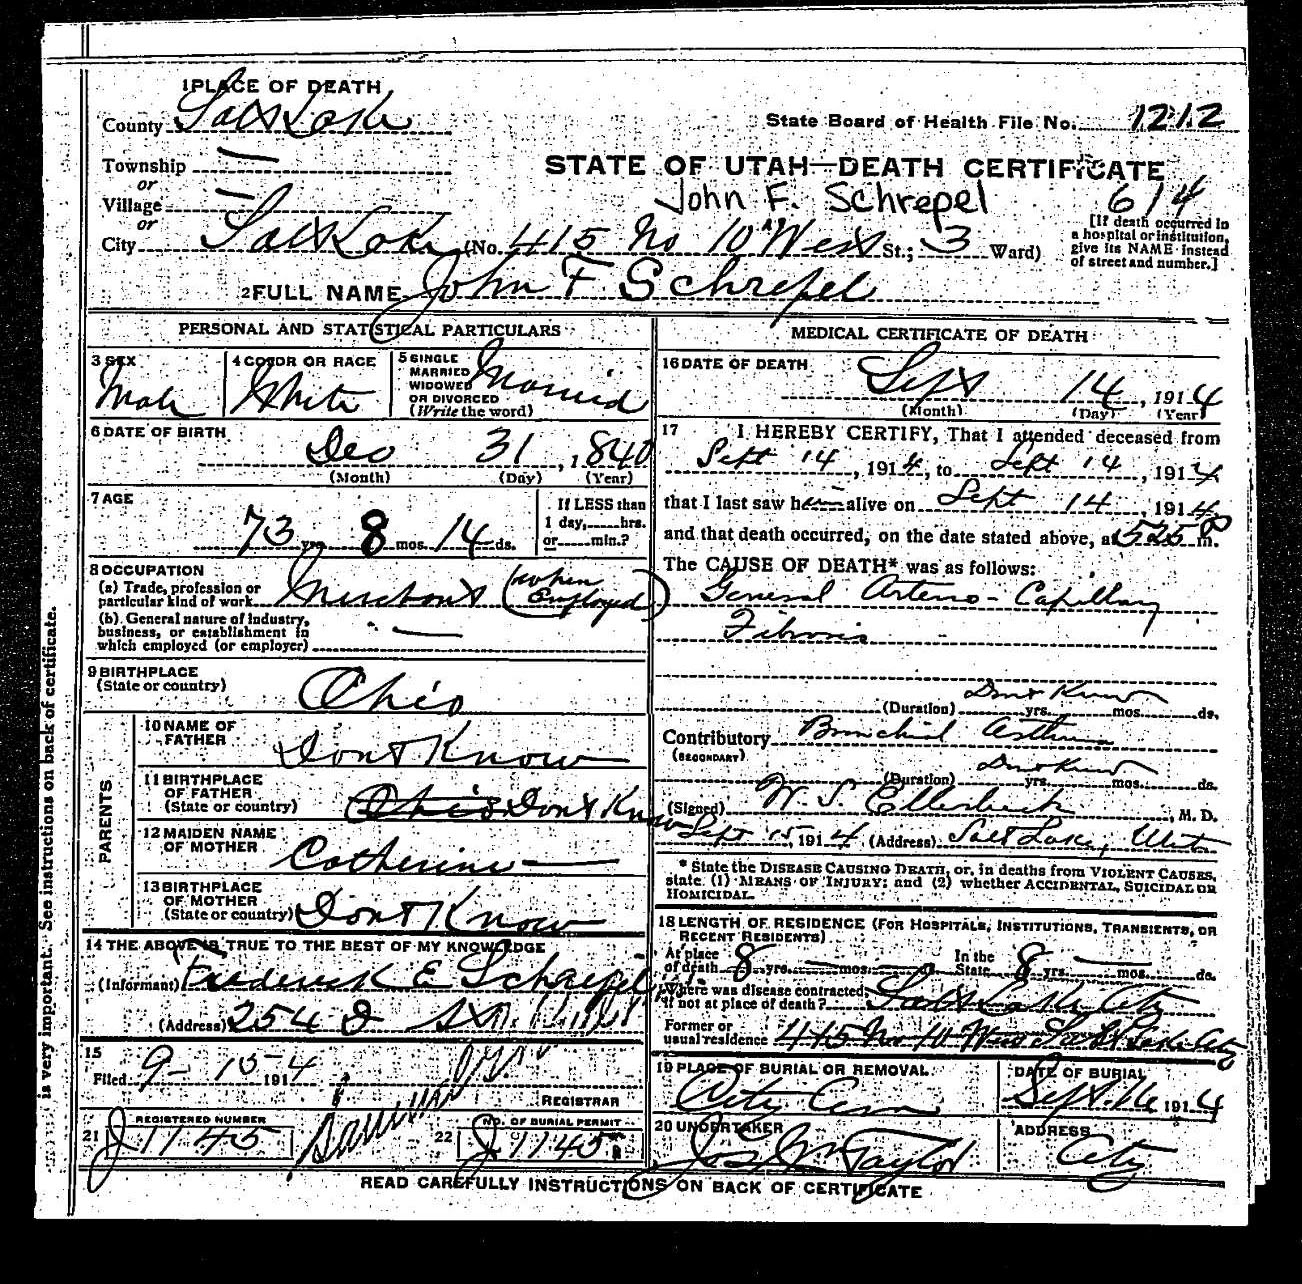 1 PLACE OF DEATH
County Salt Lake
State Board of Health File No. 1212
Township —
or
Village —
or
STATE OF UTAH—DEATH CERTIFICATE
John F. Schrepel 614
City Salt Lake (No. 415 No 10 West St.; 3 Ward)
[If death occurred in
a hospital or institution,
give its NAME instead
of street and number.]
2 FULL NAME John F Schrepel
PERSONAL AND STATISTICAL PARTICULARS
3 SEX
Male
4 COLOR OR RACE
White
5 SINGLE
MARRIED
WIDOWED
OR DIVORCED
(Write the word)
Married
6 DATE OF BIRTH
Dec 31, 1840
(Month) (Day) (Year)
7 AGE
73 yrs. 8 mos. 14 ds.
If LESS than
1 day, hrs.
or min.?
8 OCCUPATION
(a) Trade, profession or
particular kind of work Merchant (when Employed)
(b) General nature of industry,
business, or establishment in
which employed (or employer) —
9 BIRTHPLACE
(State or country)
Ohio
PARENTS
10 NAME OF
FATHER
Dont Know
11 BIRTHPLACE
OF FATHER
(State or country) Ohio Dont Know
12 MAIDEN NAME
OF MOTHER
Catherine —
13 BIRTHPLACE
OF MOTHER
(State or country) Dont Know
14 THE ABOVE IS TRUE TO THE BEST OF MY KNOWLEDGE
(Informant) Frederick E Schrepel
(Address) 254 D St
15
Filed 9-15 1914
REGISTRAR
REGISTERED NUMBER
21 J 1145
22 NO. OF BURIAL PERMIT
J 1145
MEDICAL CERTIFICATE OF DEATH
16 DATE OF DEATH
Sept 14, 1914
(Month) (Day) (Year)
17 I HEREBY CERTIFY, That I attended deceased from
Sept 14, 1914, to Sept 14, 1914
that I last saw him alive on Sept 14, 1914
and that death occurred, on the date stated above, at 525 P m.
The CAUSE OF DEATH* was as follows:
General Arterio-Capillary
Fibrosis
(Duration) Dont Know yrs. mos. ds.
Contributory Bronchial Asthma
(SECONDARY)
(Duration) Dont Know yrs. mos. ds.
(Signed) W. S. Ellerbeck, M. D.
Sept 15, 1914 (Address) Salt Lake, Utah
* State the DISEASE CAUSING DEATH, or, in deaths from VIOLENT CAUSES,
state (1) MEANS OF INJURY; and (2) whether ACCIDENTAL, SUICIDAL OR
HOMICIDAL.
18 LENGTH OF RESIDENCE (FOR HOSPITALS, INSTITUTIONS, TRANSIENTS, OR
RECENT RESIDENTS)
At place
of death 8 yrs. — mos. — ds.
In the
State 8 yrs. — mos. ds.
Where was disease contracted,
if not at place of death? Salt Lake City
Former or
usual residence 415 No 10 West Salt Lake City
19 PLACE OF BURIAL OR REMOVAL
City Cem
DATE OF BURIAL
Sept. 16 1914
20 UNDERTAKER
Jos Wm Taylor
ADDRESS
City
READ CAREFULLY INSTRUCTIONS ON BACK OF CERTIFICATE
is very important. See instructions on back of certificate.